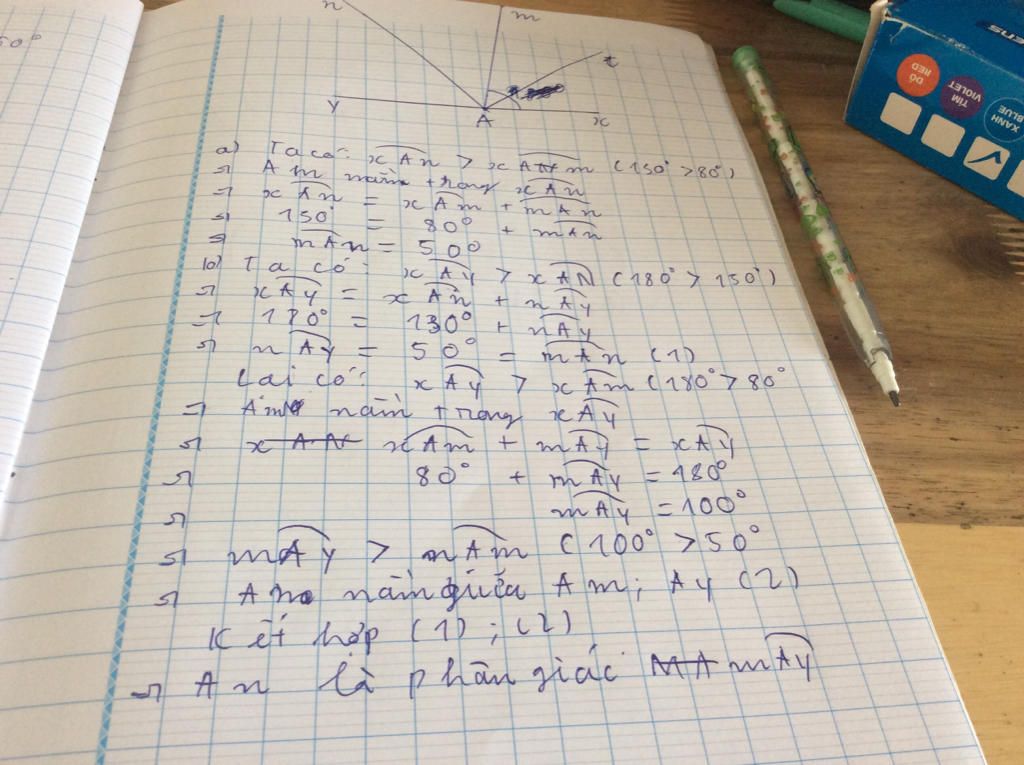 50°
n
m
t
y
A
x
a) Ta có: xAn > xAm (150° > 80°)
=> Am nằm trong xAn
=> xAn = xAm + mAn
=> 150° = 80° + mAn
=> mAn = 50°
b) Ta có: xAy > xAN (180° > 150°)
=> xAy = xAn + nAy
=> 180° = 130° + nAy
=> nAy = 50° = mAn (1)
Lại có: xAy > xAm (180° > 80°
=> Am nằm trong xAy
=> xAm + mAy = xAy
80° + mAy = 180°
=> mAy = 100°
=> mAy > nAm (100° > 50°
=> An nằm giữa Am; Ay (2)
Kết hợp (1); (2)
=> An là phân giác mAy
ENS
ĐỎ
RED
TÍM
VIOLET
XANH
BLUE